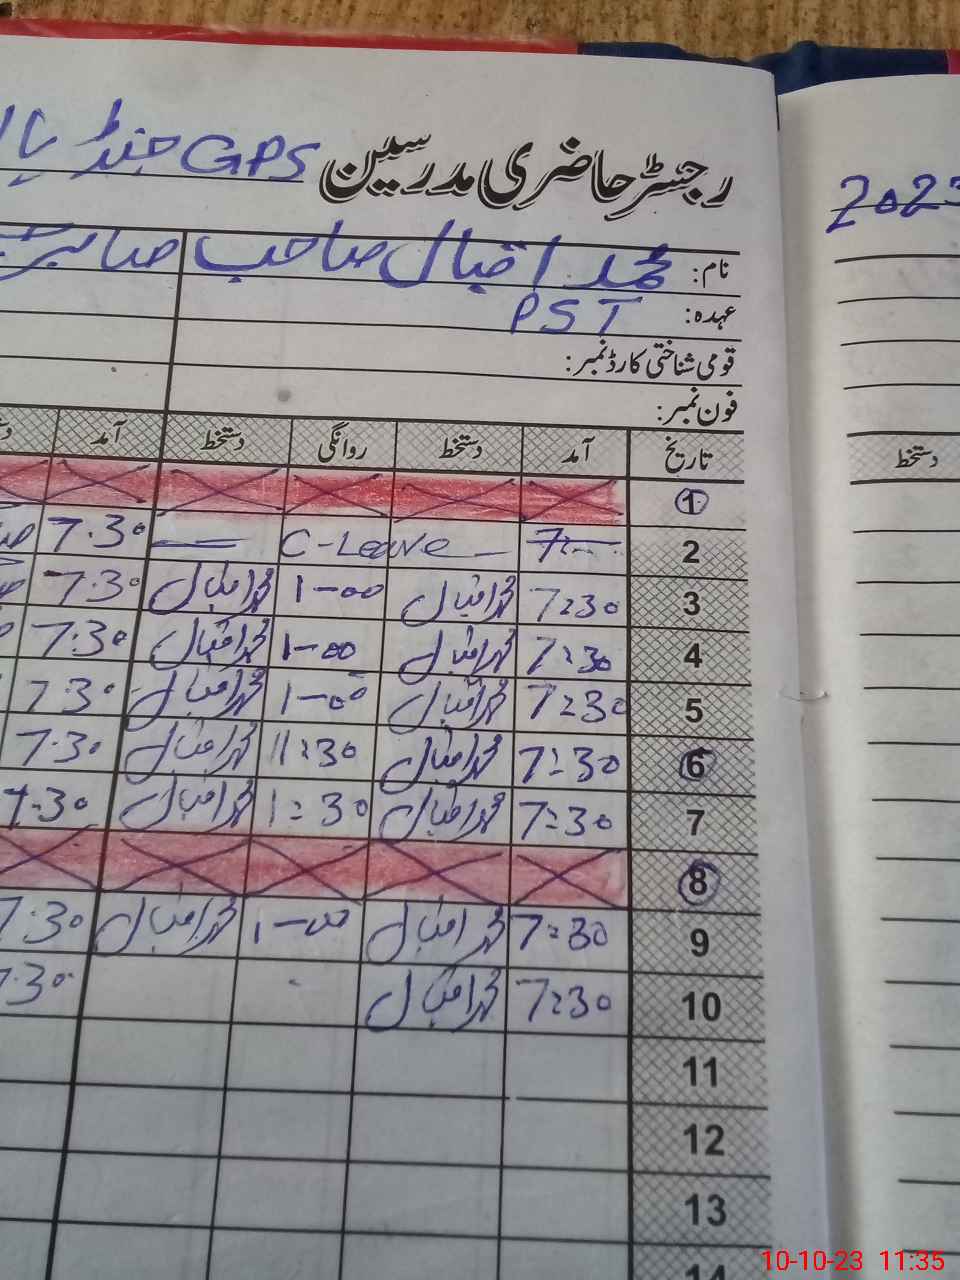 رجسٹر حاضری مدرسین GPS جنڈ
2023
نام: محمد اقبال صاحب صابر
عہدہ: PST
قومی شناختی کارڈ نمبر:
فون نمبر:
تاریخ آمد دستخط روانگی دستخط آمد
دستخط
1
2 7 C-Leave 7.30
3 7:30 محمد اقبال 1-00 محمد اقبال 7.30
4 7:30 محمد اقبال 1-00 محمد اقبال 7.30
5 7:30 محمد اقبال 1-00 محمد اقبال 7.30
6 7:30 محمد اقبال 11:30 محمد اقبال 7.30
7 7:30 محمد اقبال 1:30 محمد اقبال 7.30
8
9 7:30 محمد اقبال 1-00 محمد اقبال 7.30
10 7:30 محمد اقبال 7.30
11
12
13
14
10-10-23 11:35